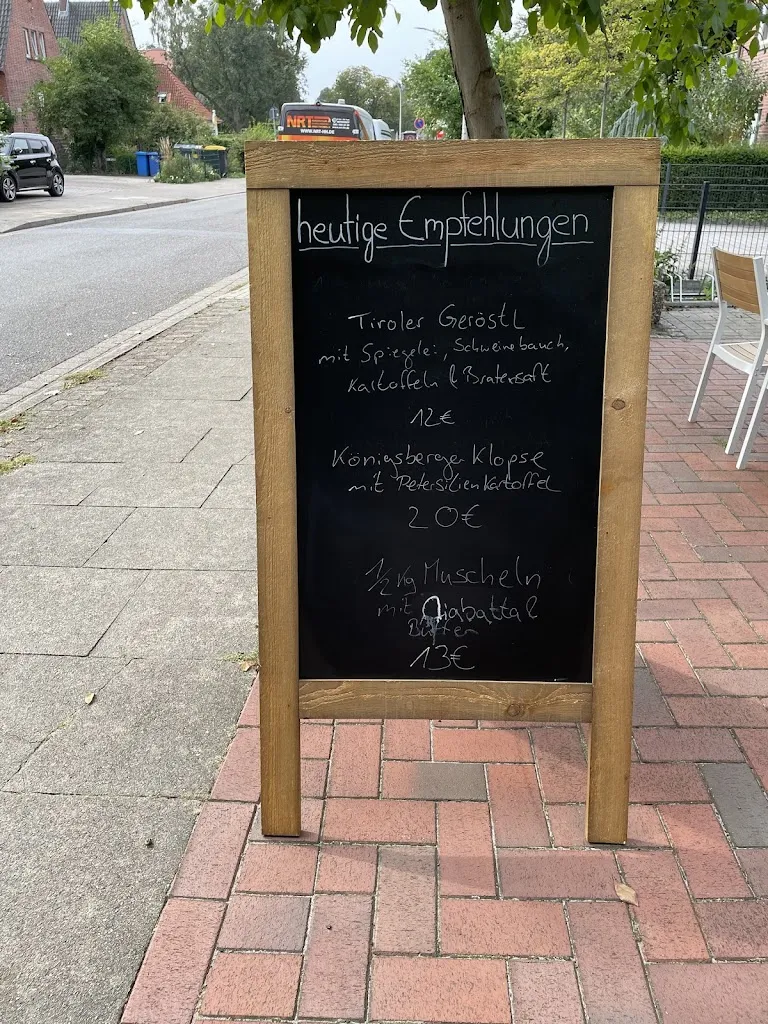 NRT
WWW.NRT-HH.DE
heutige Empfehlungen
Tiroler Geröstl
mit Spiegelei, Schweinebauch,
Kartoffeln & Bratensaft
12€
Königsberger Klopse
mit Petersilienkartoffel
20€
1/2 kg Muscheln
mit Ciabatta &
Butter
13€